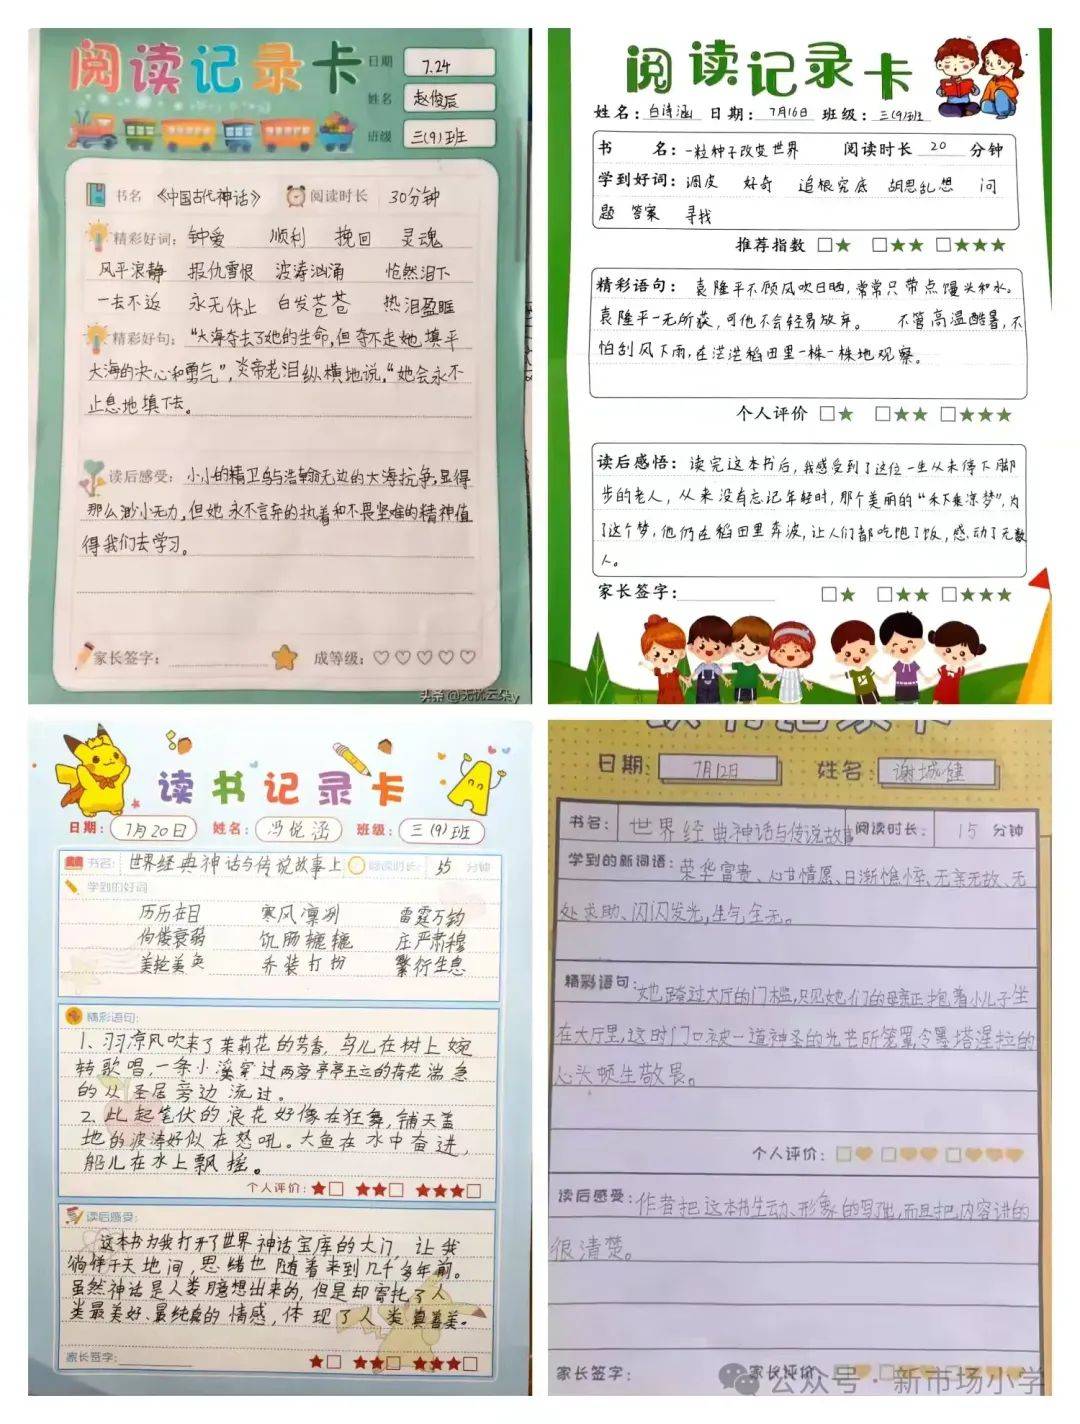 阅读记录卡
日期 7.24
姓名 赵俊辰
班级 三(9)班
书名 《中国古代神话》 阅读时长 30分钟
精彩好词: 钟爱 顺利 挽回 灵魂
风平浪静 报仇雪恨 波涛汹涌 怆然泪下
一去不返 永无休止 白发苍苍 热泪盈眶
精彩好句: “大海夺去了她的生命,但夺不走她填平
大海的决心和勇气”,炎帝老泪纵横地说,“她会永不
止息地填下去。
读后感受: 小小的精卫鸟与浩瀚无边的大海抗争,显得
那么渺小无力,但她永不言弃的执着和不畏坚难的精神值
得我们去学习。
家长签字: 成等级:
头条@无忧云朵y
阅读记录卡
姓名:白诗涵 日期:7月16日 班级:三(9)班
书名:一粒种子改变世界 阅读时长 20 分钟
学到好词: 调皮 好奇 追根究底 胡思乱想 问
题 答案 寻找
推荐指数 □★ □★★ □★★★
精彩语句: 袁隆平不顾风吹日晒,常常只带点馒头和水。
袁隆平一无所获,可他不会轻易放弃。 不管高温酷暑,不
怕刮风下雨,在茫茫稻田里一株一株地观察。
个人评价 □★ □★★ □★★★
读后感悟: 读完这本书后,我感受到了这位一生从未停下脚
步的老人,从来没有忘记年轻时,那个美丽的“禾下乘凉梦”,为
了这个梦,他仍在稻田里奔波,让人们都吃饱了饭,感动了无数
人。
家长签字: □★ □★★ □★★★
读书记录卡
日期: 7月20日 姓名: 冯悦涵 班级: 三(9)班
书名: 世界经典神话与传说故事上 阅读时长: 35 分钟
学到的好词
历历在目 寒风凛冽 雷霆万钧
佝偻衰弱 饥肠辘辘 庄严肃穆
美轮美奂 乔装打扮 繁衍生息
精彩语句:
1、习习凉风吹来了茉莉花的芳香,鸟儿在树上婉
转歌唱,一条小溪穿过两旁亭亭玉立的荷花湍急
的从圣居旁边流过。
2、此起笔伏的浪花好像在狂舞,铺天盖
地的波涛好似在怒吼。大鱼在水中奋进,
船儿在水上飘摇。
个人评价: ★□ ★★□ ★★★□
读后感受:
这本书为我打开了世界神话宝库的大门,让我
徜徉于天地间,思绪也随着来到几千多年前。
虽然神话是人类臆想出来的,但是却寄托了人
类最美好、最纯真的情感,体现了人类真善美。
家长签字: ★□ ★★□ ★★★□
日期: 7月12日 姓名: 谢城健
书名: 世界经典神话与传说故事 阅读时长: 15 分钟
学到的新词语: 荣华富贵、心甘情愿、日渐憔悴、无亲无故、无
处求助、闪闪发光,生气全无。
精彩语句: 她踏过大厅的门槛,只见她们的母亲正抱着小儿子坐
在大厅里,这时门口被一道神圣的光芒所笼罩,令墨塔涅拉的
心头顿生敬畏。
个人评价:
读后感受: 作者把这本书生动、形象的写出,而且把内容讲的
很清楚。
家长签字: 家长评价
公众号·新市场小学